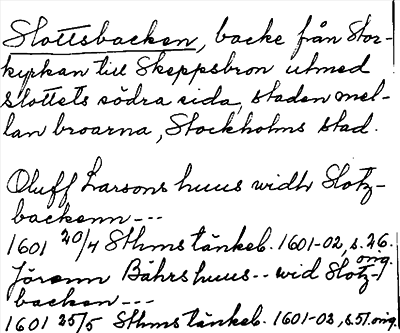 Slottsbacken, backe från Stor-
kyrkan till Skeppsbron utmed
slottets södra sida, staden mel-
lan broarna, Stockholms stad.
Oluff Larsons huus widh Slotz-
backenn ---
1601 20/4 Sthms tänkeb. 1601-02, s. 26.
orig.
Jörenn Bährs huus -- wid Slotz-
backen ---
1601 25/5 Sthms tänkeb. 1601-02, s. 51. orig.